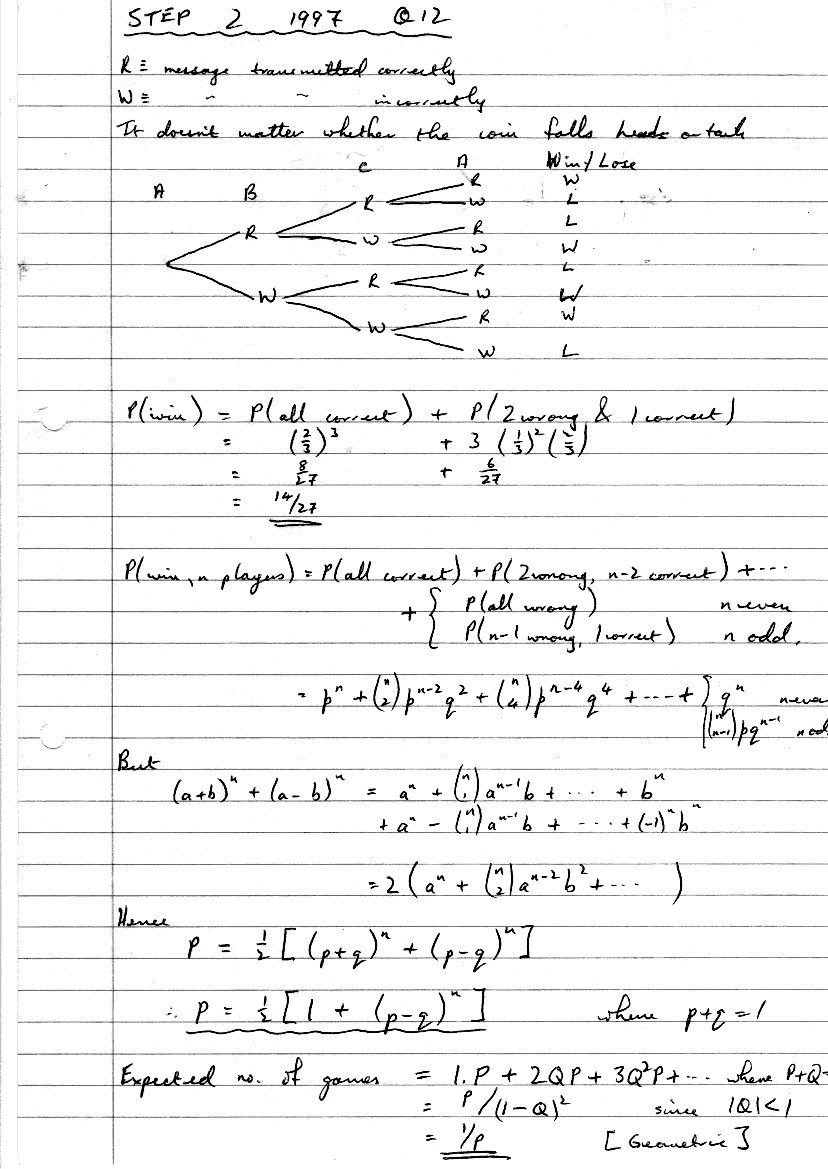 STEP 2 1997 Q12
R ≡ message transmitted correctly
W ≡ " " incorrectly
It doesn't matter whether the coin falls heads or tails
A B C A Win/Lose
R W
R W L
R L
R W W W
R R L
W W W
R W
W W L
P(win) = P(all correct) + P(2 wrong & 1 correct)
= (2/3)³ + 3 (1/3)² (2/3)
= 8/27 + 6/27
= 14/27
P(win, n players) = P(all correct) + P(2 wrong, n-2 correct) + ...
+ { P(all wrong) n even
P(n-1 wrong, 1 correct) n odd.
= pⁿ + (n 2) pⁿ⁻² q² + (n 4) pⁿ⁻⁴ q⁴ + ... + } qⁿ n even
(n n-1) p qⁿ⁻¹ n od
But
(a+b)ⁿ + (a-b)ⁿ = aⁿ + (n 1) aⁿ⁻¹ b + ... + bⁿ
+ aⁿ - (n 1) aⁿ⁻¹ b + ... + (-1)ⁿ bⁿ
= 2 ( aⁿ + (n 2) aⁿ⁻² b² + ... )
Hence
P = ½ [ (p+q)ⁿ + (p-q)ⁿ ]
∴ P = ½ [ 1 + (p-q)ⁿ ] where p+q = 1
Expected no. of games = 1.P + 2QP + 3Q²P + ... where P+Q=
= P/(1-Q)² since |Q|<1
= 1/P [Geometric]